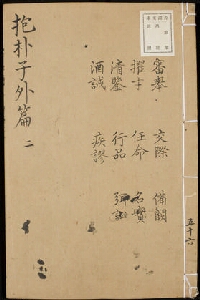 抱朴子外篇 二
審舉 交際 備闕
擢才 任命 名實
清鑒 行品 弭訟
酒誡 疾謬